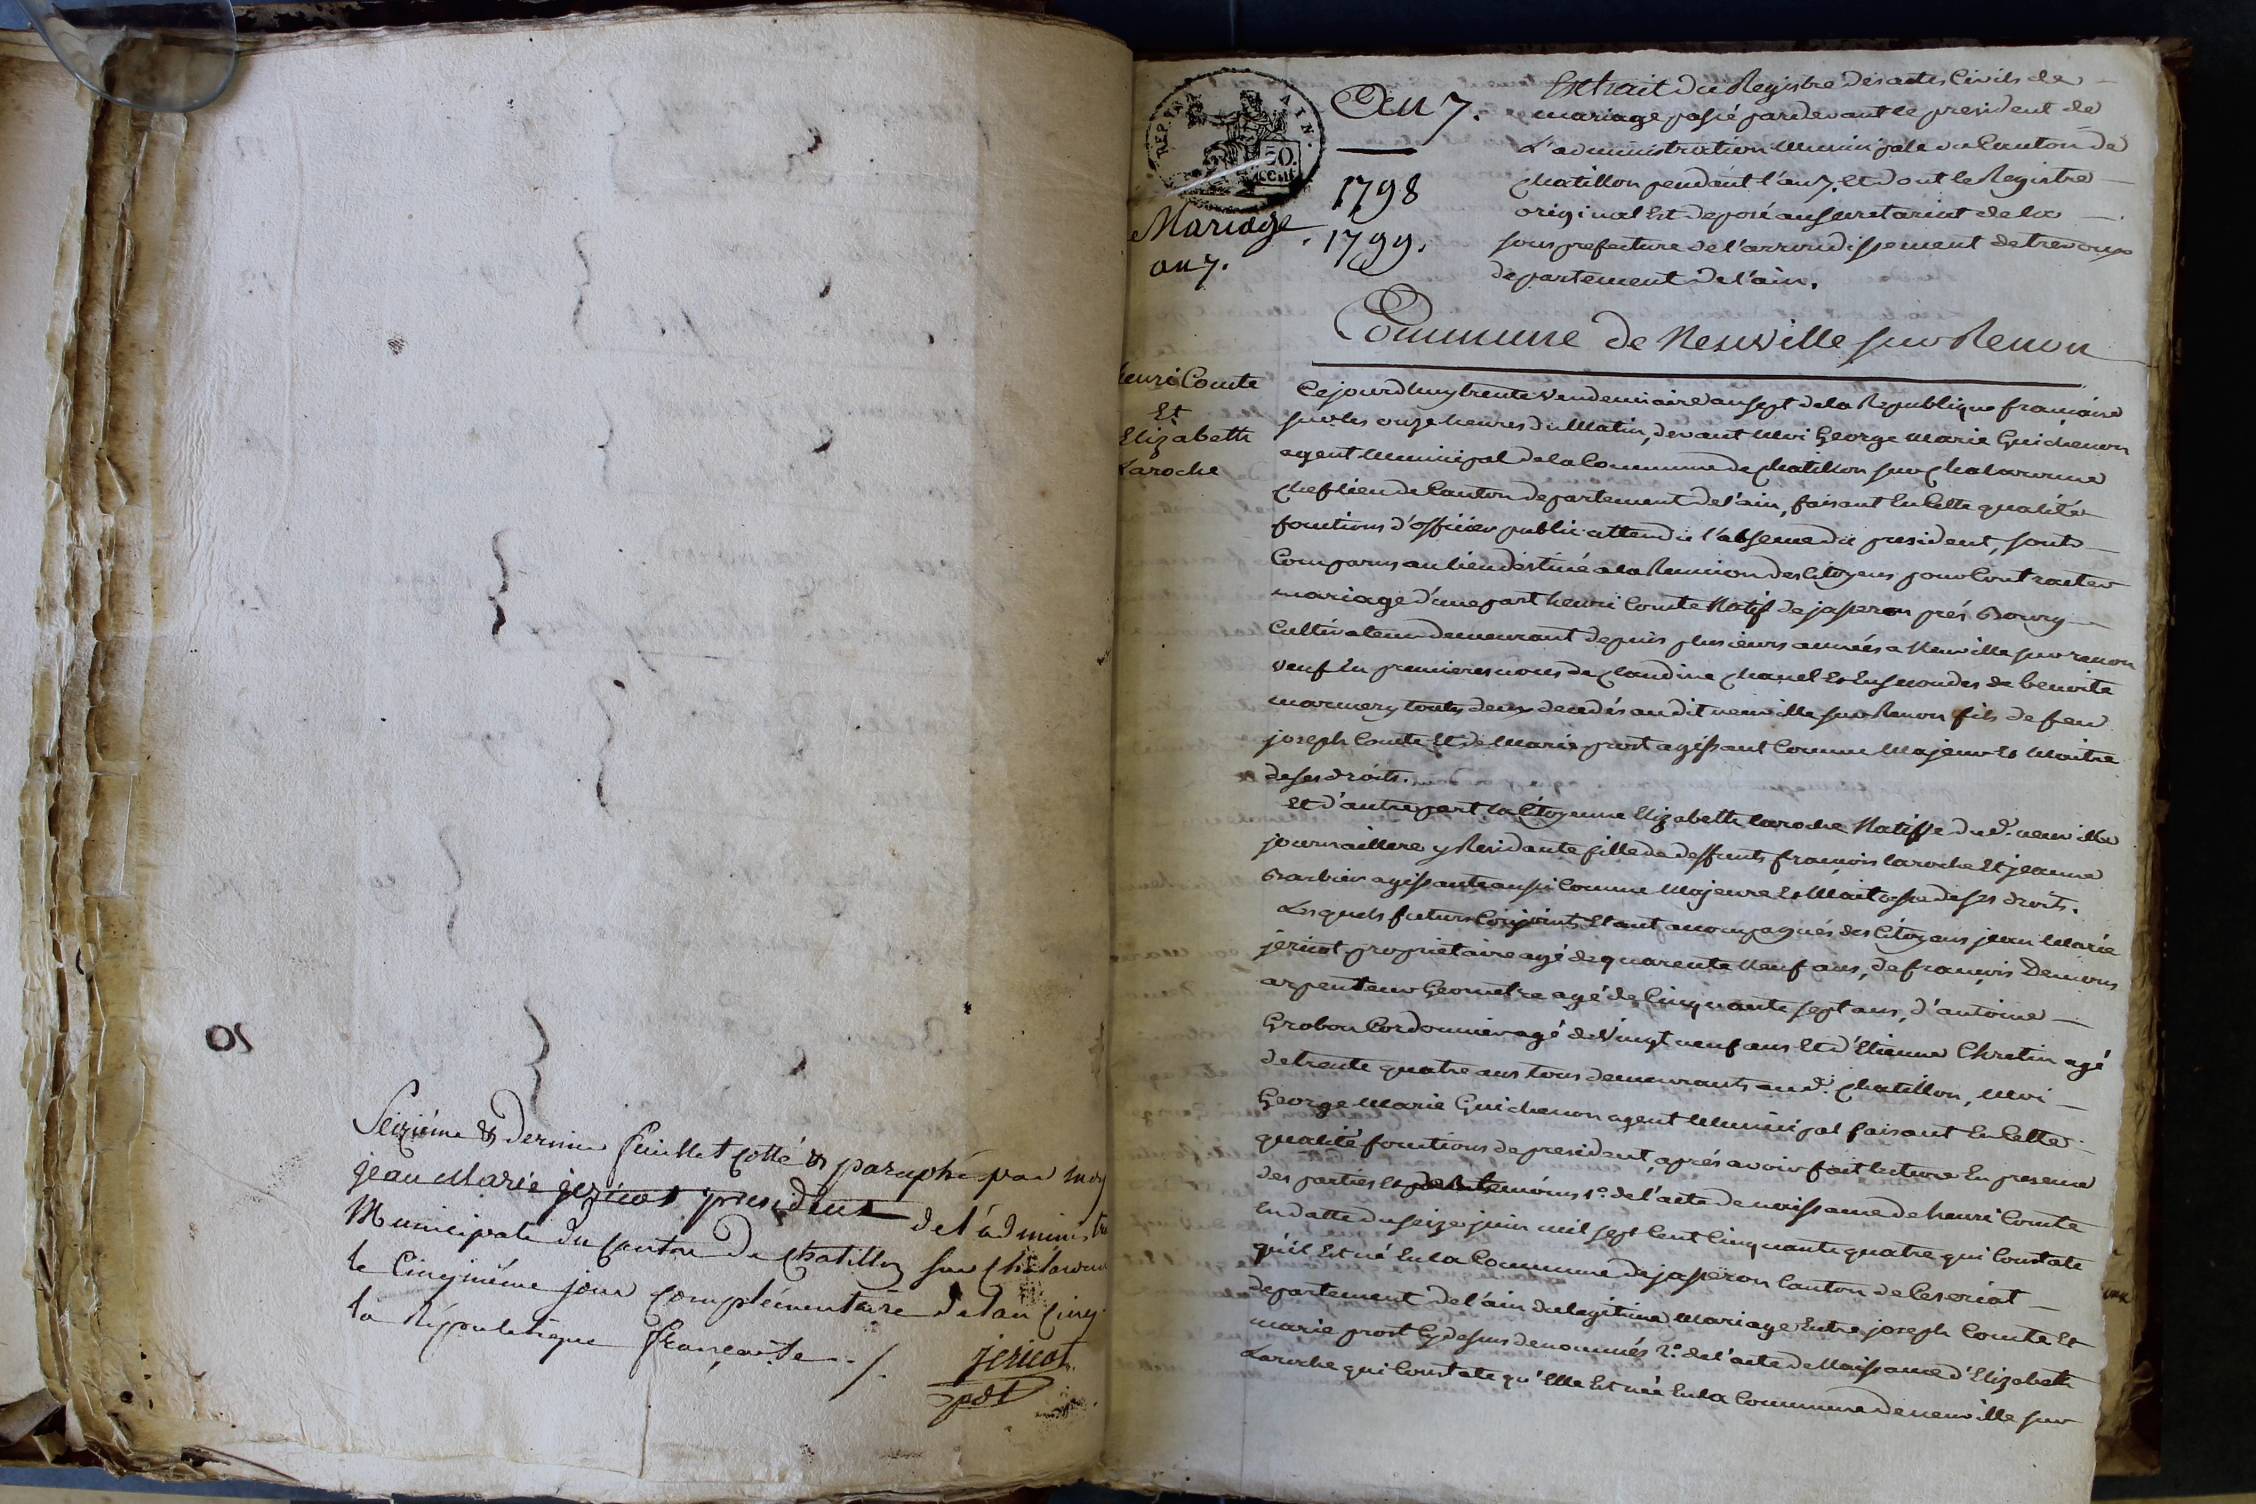 Seizième & dernier feuillet cotté & paraphé par moy
jean Marie jericot president de l'administr
Municipale du Canton de chatillon sur chalaronne
le Cinquième jour complémentaire de l'an Cinq
la République française ./.
jericot
pdt
REP. FRA
AIN.
50.
cent
An 7.
1798
1799.
Mariage
an 7.
Extrait du Registre des actes Civils de
mariage passé pardevant le president de
L'administration Municipale du Canton de
chatillon pendant l'an 7. et dont le Registre
original Est deposé au secretariat de la
sous prefecture de l'arrondissement de trevoux
departement de l'ain.
Commune de Neuville sur Renon
henri Comte
Et
Elizabeth
Laroche
Cejourdhuy trente Vendemiaire an sept de la Republique francaise
sur les onze heures du Matin, devant Moi George Marie Guichenon
agent Municipal de la Commune de chatillon sur chalaronne
chef lieu de Canton departement de l'ain, faisant En Cette qualité
fonctions d'officier public attendu l'absence du president, sont
Comparus au lieu destiné a la Reunion des Citoyens pour Contracter
mariage d'une part henri Comte Natif de jasseron prés Bourg
Cultivateur demeurant depuis plusieurs années a Neuville sur renon
veuf En premieres noces de Claudine chanel Et En secondes de benoite
marmery touts deux decedés au dit neuville sur Renon fils de feu
joseph Comte Et de Marie prost agissant Comme Majeur Et Maitre
de ses droits.
Et d'autre part la Citoyenne Elizabeth laroche Natifse du d. neuville
journailliere y Residante fille de deffunts francois laroche Et jeanne
Barbier agissante aussi Comme Majeure Et Maitresse de ses droits.
Lesquels futurs Conjoints Etant accompagnés des Citoyens jean Marie
jericot proprietaire agé de quarente Neuf ans, de francois Demons
arpenteur Geometre agé de Cinquante sept ans, d'antoine
Grobon Cordonnier agé de Vingt neuf ans Et d'Etienne Chretin agé
de trente quatre ans tous demeurants au d. chatillon, Moi
George Marie Guichenon agent Municipal faisant En Cette
qualité fonctions de president, aprés avoir fait lecture En presence
des parties Et des temoins 1.º de l'acte de naissance de henri Comte
En datte du seize juin mil sept Cent Cinquante quatre qui Constate
qu'il Est né En la Commune de jasseron Canton de Ceseriat
departement de l'ain du legitime Mariage Entre joseph Comte Et
marie prost Cy dessus denommés 2.º de l'acte de Naissance d'Elizabeth
Laroche qui Constate qu'Elle Est née En la Commune de neuville sur